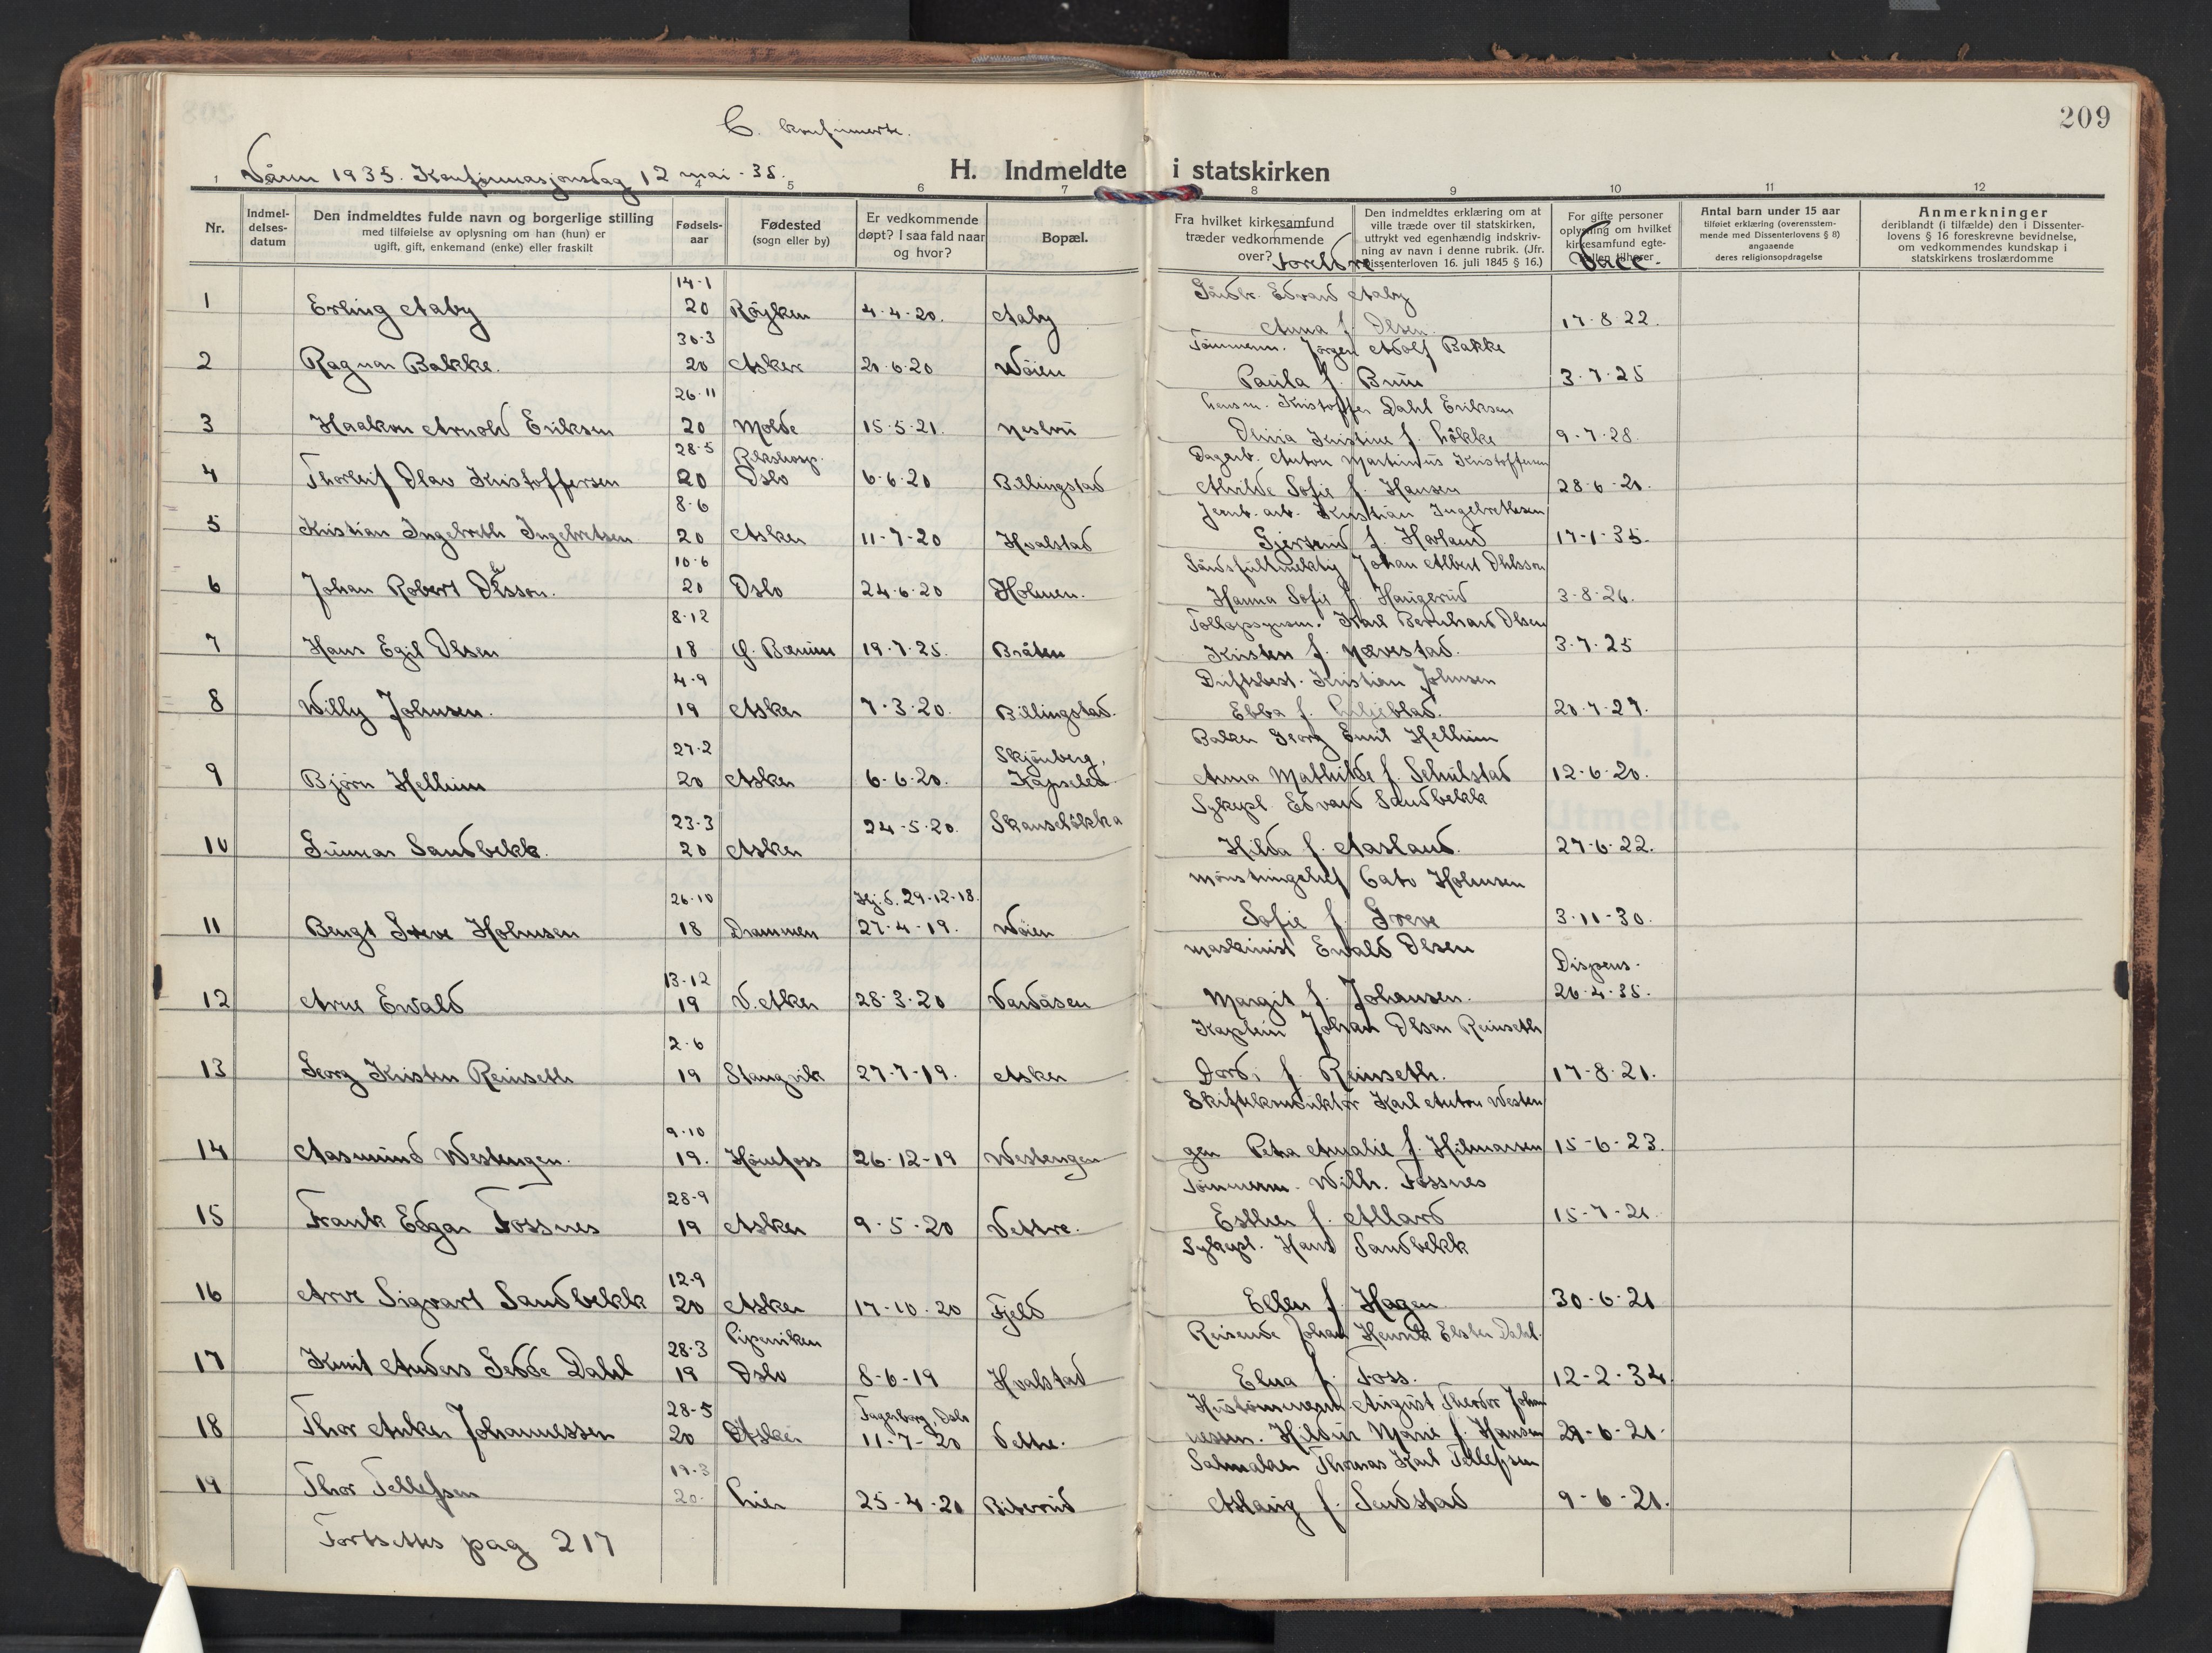 209
C. konfirmerte.
Våren 1935. Konfirmasjonsdag 12 mai - 35.
H. Indmeldte i statskirken
1 4 5 6 7 8 9 10 11 12
Nr.
Indmel-
delses-
datum
Den indmeldtes fulde navn og borgerlige stilling
med tilføielse av oplysning om han (hun) er
ugift, gift, enkemand (enke) eller fraskilt
Fødsels-
aar
Fødested
(sogn eller by)
Er vedkommende
døpt? I saa fald naar
og hvor?
Bopæl.
Fra hvilket kirkesamfund
træder vedkommende
over?
Foreldre
Den indmeldtes erklæring om at
ville træde over til statskirken,
uttrykt ved egenhændig indskriv-
ning av navn i denne rubrik. (Jfr.
Dissenterloven 16. juli 1845 § 16.)
For gifte personer
oplysning om hvilket
kirkesamfund egte-
fællen tilhører
Vacc.
Antal barn under 15 aar
tilføiet erklæring (overensstem-
mende med Dissenterlovens § 8)
angaaende
deres religionsopdragelse
Anmerkninger
deriblandt (i tilfælde) den i Dissenter-
lovens § 16 foreskrevne bevidnelse,
om vedkommendes kundskap i
statskirkens troslærdomme
14-1 Gårdbr. Edvard Aaby
1 Erling Aaby 20 Røyken 4-4-20. Aaby Anna f. Olsen. 17-8-22.
30-3 Tømmerm. Jørgen Adolf Bakke
2 Ragnar Bakke. 20 Asker 20-6-20 Wøien Paula f. Bruu 3-7-25
26-11 Kristoffer Dahl Eriksen
3 Haakon Arnold Eriksen 20 Molde 15-5-21. Nesbru Olivia Kristine f. Løkke 9-7-28.
28-5 Rikshosp. Dagarb. Anton Martinius Kristoffersen
4 Thorleif Olav Kristoffersen 20 Oslo 6-6-20 Billingstad Alvilde Sofie f. Hansen 28-6-21.
8-6 Jernb. arb. Kristian Ingebrethsen
5 Kristian Ingebreth Ingebretsen 20 Asker 11-7-20 Hvalstad Gjertrud f. Hovland 17-1-35.
10-6 Gårdsfullmektig Johan Albert Ohlsson
6 Johan Robert Olsson. 20 Oslo 24-6-20 Holmen. Hanna Sofie f. Haugerud 3-8-26.
8-12 Tollopsynsm. Karl Bernhard Olsen
7 Hans Egil Olsen 18 Ø. Bærum 19-7-25. Bråten Kristen f. Nævestad. 3-7-25
4-9 Driftsbest. Kristian Johnsen
8 Willy Johnsen. 19 Asker 7-3-20. Billingstad. Ebba f. Liljeblad. 20-7-27.
27-2 Skjønberg, Baker Georg Emil Hellum
9 Bjørn Hellum 20 Asker 6-6-20. Anna Mathilde f. Schulstad 12-6-20.
23-3 24-5-20. Skauseløkka Sykepl. Edvard Sandbekk
10 Gunnar Sandbekk. 20 Asker Hilda f. Aasland. 27-6-22.
26-10 Hj.d. 29-12-18. Mønstringschef Cato Holmsen
11 Bengt Greve Holmsen 18 Drammen 27-4-19. Wøien Sofie f. Greve 3-11-30.
13-12 Maskinist Ewald Olsen Dispens.
12 Arne Ewald 19 V. Aker 28-3-20 Vardåsen Margit f. Johansen. 26-4-35.
2-6 Kaptein Johan Olsen Reinseth
13 Georg Kristen Reinseth 19 Stangvik 27-7-19. Asker Dordi f. Reinseth. 17-8-21.
9-10 Skiftekonduktør Karl Anton Westen
14 Aasmund Westengen. 19. Hønefoss 26-12-19 Westengen gen Petra Amalie f. Hilmarsen 15-6-23.
28-9 Tømmerm. Wilh. Fossnes
15 Frank Edgar Fossnes 19 Asker 9-5-20 Vettre. Esther f. Allard 15-7-21.
12-9 Sykepl. Hans Sandbekk
16 Arve Sigvart Sandbekk 20 Asker 17-10-20 Fjeld Ellen f. Hagen 30-6-21
28-3 Piperviken Reisende Johan Henrik Elster Dahl.
17 Knut Anders Gedde Dahl 19 Oslo 8-6-19 Hvalstad Elna f. Foss. 12-2-34
28-5 Fagerborg, Oslo Hustømmerm. August Theodor Johan
18 Thor Anker Johannessen 20 Asker 11-7-20 Vettre. nessen. Hildur Marie f. Hansen 29-6-21.
19-3 Salmaker Thomas Karl Tellefsen
19 Thor Tellefsen 20. Lier 25-4-20 Biterud Aslaug f. Sendstad 9-6-21.
Fortsettes pag 217